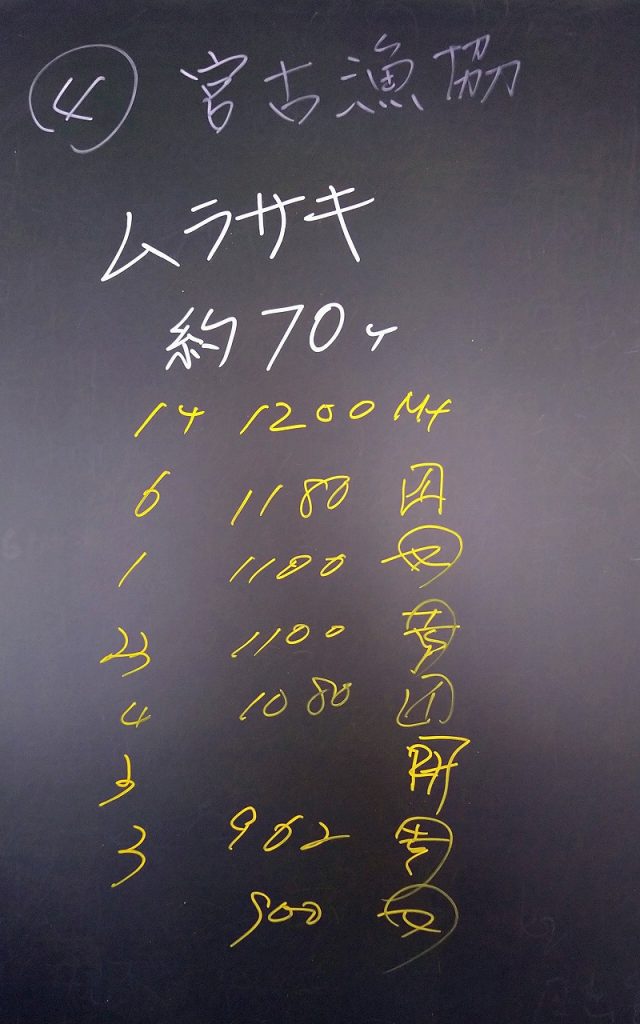 ④ 宮古漁協
ムラサキ
約70ケ
14 1200
6 1180
1 1100
23 1100
4 1080
3
3 902
900